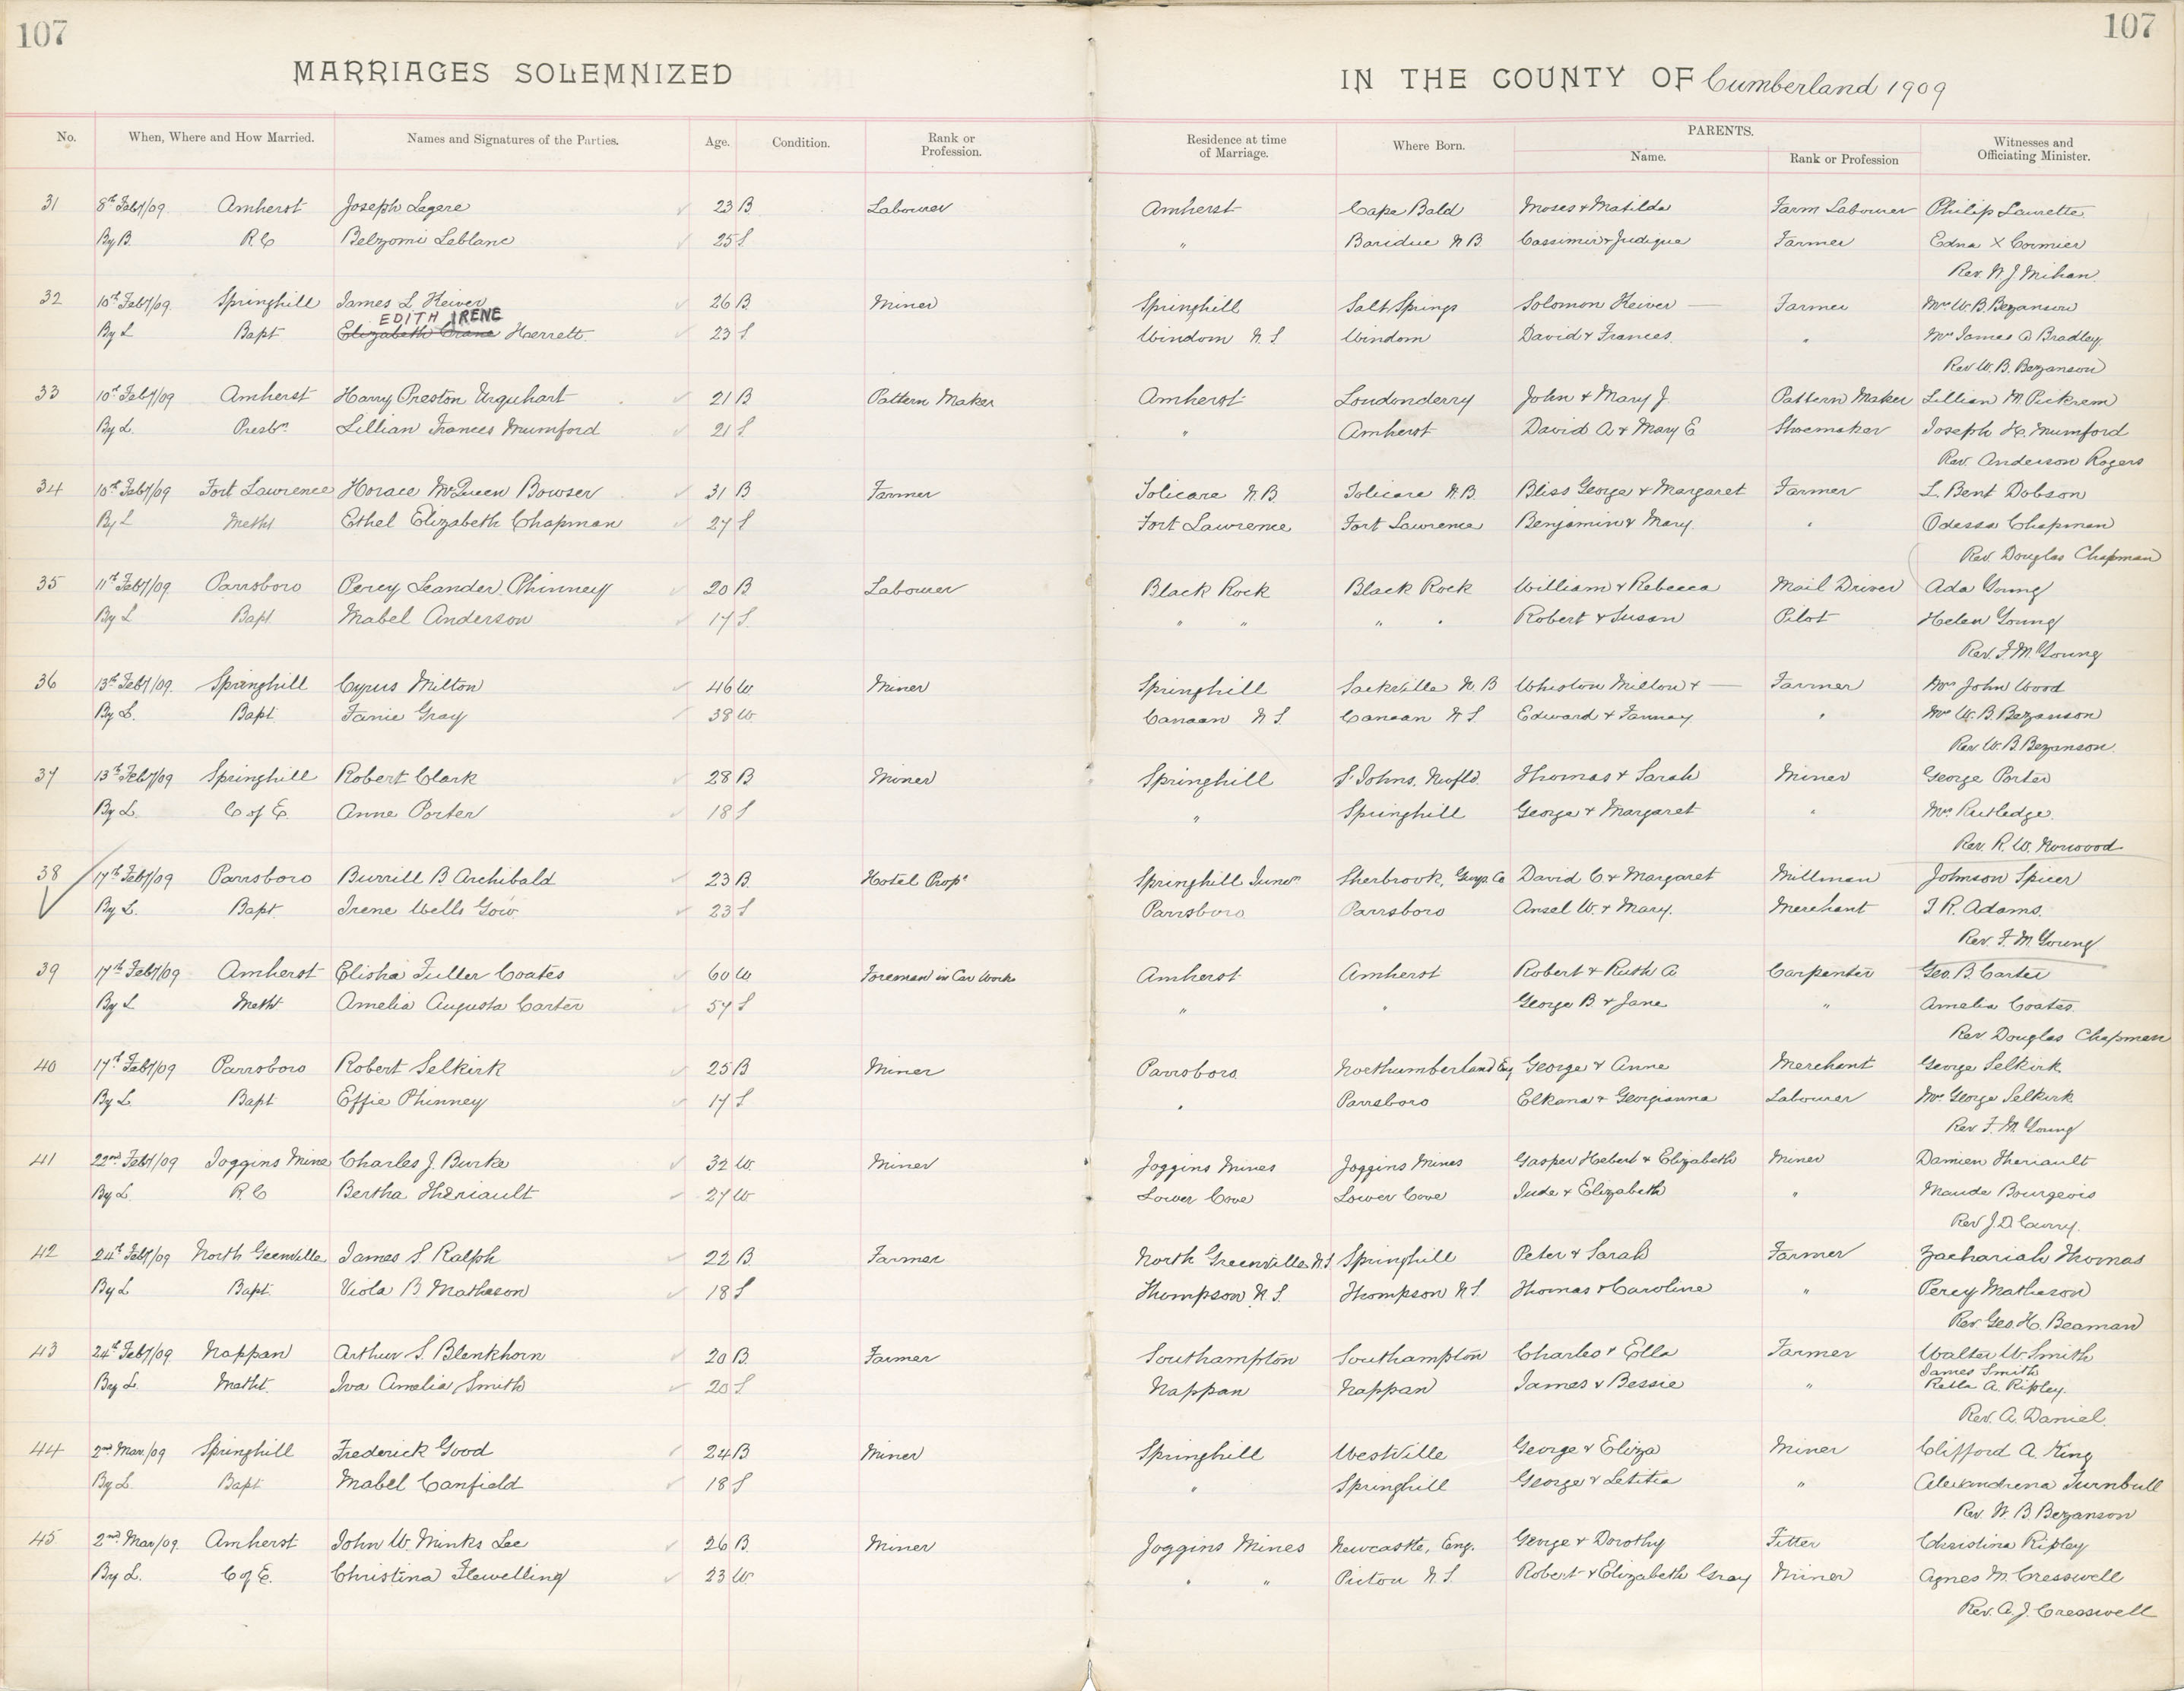 107
107
MARRIAGES SOLEMNIZED
IN THE COUNTY OF Cumberland 1909
No. When, Where and How Married. Names and Signatures of the Parties. Age. Condition. Rank or Profession. Residence at time of Marriage. Where Born. PARENTS. Name. Rank or Profession Witnesses and Officiating Minister.
31 8th Feby/09 Amherst Joseph Legere 23 B Labourer Amherst Cape Bald Moses & Matilda Farm Labourer Philip Laurette
By B. R.C Belzomi Leblanc 25 S " N B Cassimir & Judique Farmer Edna X Cormier
Rev. W. J. Mihan
32 10th Feby/09 Springhill James L Keiver 26 B Miner Springhill Salt Springs Solomon Keiver — Farmer Mrs W. B. Bezanson
EDITH IRENE
By L Bapt Elizabeth Crane Herrett 23 S Windom N. S Windom David & Frances " Mrs James A Bradley
Rev W. B. Bezanson
33 10th Feby/09 Amherst Harry Preston Urquhart 21 B Pattern Maker Amherst Londonderry John & Mary J. Pattern Maker Lillian M. Pickrem
By L. Presbn Lillian Frances Mumford 21 S " Amherst David A & Mary E Shoemaker Joseph H. Mumford
Rev. Anderson Rogers
34 10th Feby/09 Fort Lawrence Horace McQueen Bowser 31 B Farmer Jolicare N.B Jolicare N.B. Bliss George & Margaret Farmer L Bent Dobson
By L Metht Ethel Elizabeth Chapman 27 S Fort Lawrence Fort Lawrence Benjamin & Mary " Odessa Chapman
Rev. Douglas Chapman
35 11th Feby/09 Parrsboro Percy Leander Phinney 20 B Labourer Black Rock Black Rock William & Rebecca Mail Driver Ada Young
By L Bapt Mabel Anderson 17 S " " " " Robert & Susan Pilot Helen Young
Rev. F. M. Young
36 13th Feby/09 Springhill Cyrus Milton 46 W Miner Springhill Sackville N. B Whiston Milton & — Farmer Mrs John Wood
By L. Bapt Fanie Gray 38 W Canaan N S. Canaan N S. Edward & Fannay " Mrs W. B. Bezanson
Rev W. B Bezanson
37 13th Feby/09 Springhill Robert Clark 28 B Miner Springhill St Johns, Newfld. Thomas & Sarah Miner George Porter
By L. C of E. Anne Porter 18 S " Springhill George & Margaret " Mrs Rutledge
Rev. R. W. Norwood
38 17th Feby/09 Parrsboro Burrill B Archibald 23 B Hotel Propr Springhill Juncn Sherbrook, Guys. Co David C. & Margaret Millman Johnson Spicer
By L. Bapt Irene Wells Gow 23 S Parrsboro Parrsboro Ansel W. & Mary. Merchant J. R. Adams.
Rev. F. M. Young
39 17th Feby/09 Amherst Elisha Fuller Coates 60 W Foreman in Car Works Amherst Amherst Robert & Ruth A Carpenter Geo. B. Carter
By L Metht Amelia Augusta Carter 57 S " " George B & Jane " Amelia Coates.
Rev Douglas Chapman
40 17th Feby/09 Parrsboro Robert Selkirk 25 B Miner Parrsboro Northumberland Eng George & Anne Merchant George Selkirk
By L. Bapt Effie Phinney 17 S " Parrsboro Elkana & Georgianna Labourer Mrs George Selkirk
Rev F. M. Young
41 22nd Feby/09 Joggins Mine Charles J. Burke 32 W. Miner Joggins Mines Joggins Mines Gasper Hebert & Elizabeth Miner Damien Theriault
By L. R. C Bertha Theriault 27 W Lower Cove Lower Cove Jude & Elizabeth " Maude Bourgeois
Rev J. D. Curry.
42 24th Feby/09 North Greenville James S Ralph 22 B. Farmer North Greenville N.S Springhill Peter & Sarah Farmer Zachariah Thomas
By L Bapt. Viola B Matheson 18 S Thompson N. S. Thompson N S. Thomas & Caroline " Percy Matheson
Rev. Geo. H. Beaman
43 24th Feby/09 Nappan Arthur S. Blenkhorn 20 B. Farmer Southampton Southampton Charles & Ella Farmer Walter W Smith
James Smith
By L. Metht. Iva Amelia Smith 20 S Nappan Nappan James & Bessie " Retta A. Ripley.
Rev. A. Daniel.
44 2nd Mar./09 Springhill Frederick Good 24 B Miner Springhill Westville George & Eliza Miner Clifford A. King
By L. Bapt Mabel Canfield 18 S " Springhill George & Letitia " Alexandrena Turnbull
Rev. W. B. Bezanson
45 2nd Mar/09 Amherst John W. Minks Lee 26 B. Miner Joggins Mines Newcastle, Eng. George & Dorothy Fitter Christina Ripley
By L. C of E. Christina Flewelling 23 W " " Pictou N. S. Robert & Elizabeth Gray Miner Agnes M. Cresswell
Rev. A. J. Cresswell